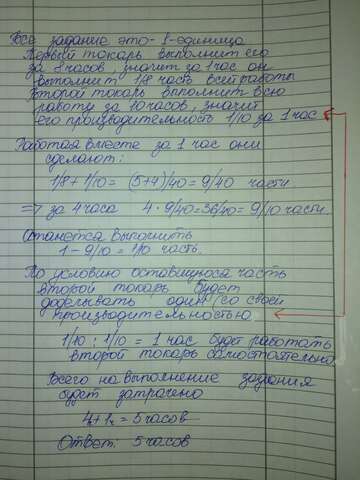 Все задание это - 1-единица
Первый токарь выполнит его
за 8 часов, значит за 1 час он
выполнит 1/8 часть всей работы
Второй токарь выполнит всю
работу за 10 часов, значит
его производительность 1/10 за 1 час
Работая вместе за 1 час они
сделают:
1/8 + 1/10 = (5+4)/40 = 9/40 части.
=> за 4 часа 4 · 9/40 = 36/40 = 9/10 части.
Останется выполнить
1 - 9/10 = 1/10 часть.
По условию оставшуюся часть
второй токарь будет
доделывать один со своей
производительностью
1/10 : 1/10 = 1 час будет работать
второй токарь самостоятельно
Всего на выполнение задания
будет затрачено
4 + 1 = 5 часов
Ответ: 5 часов